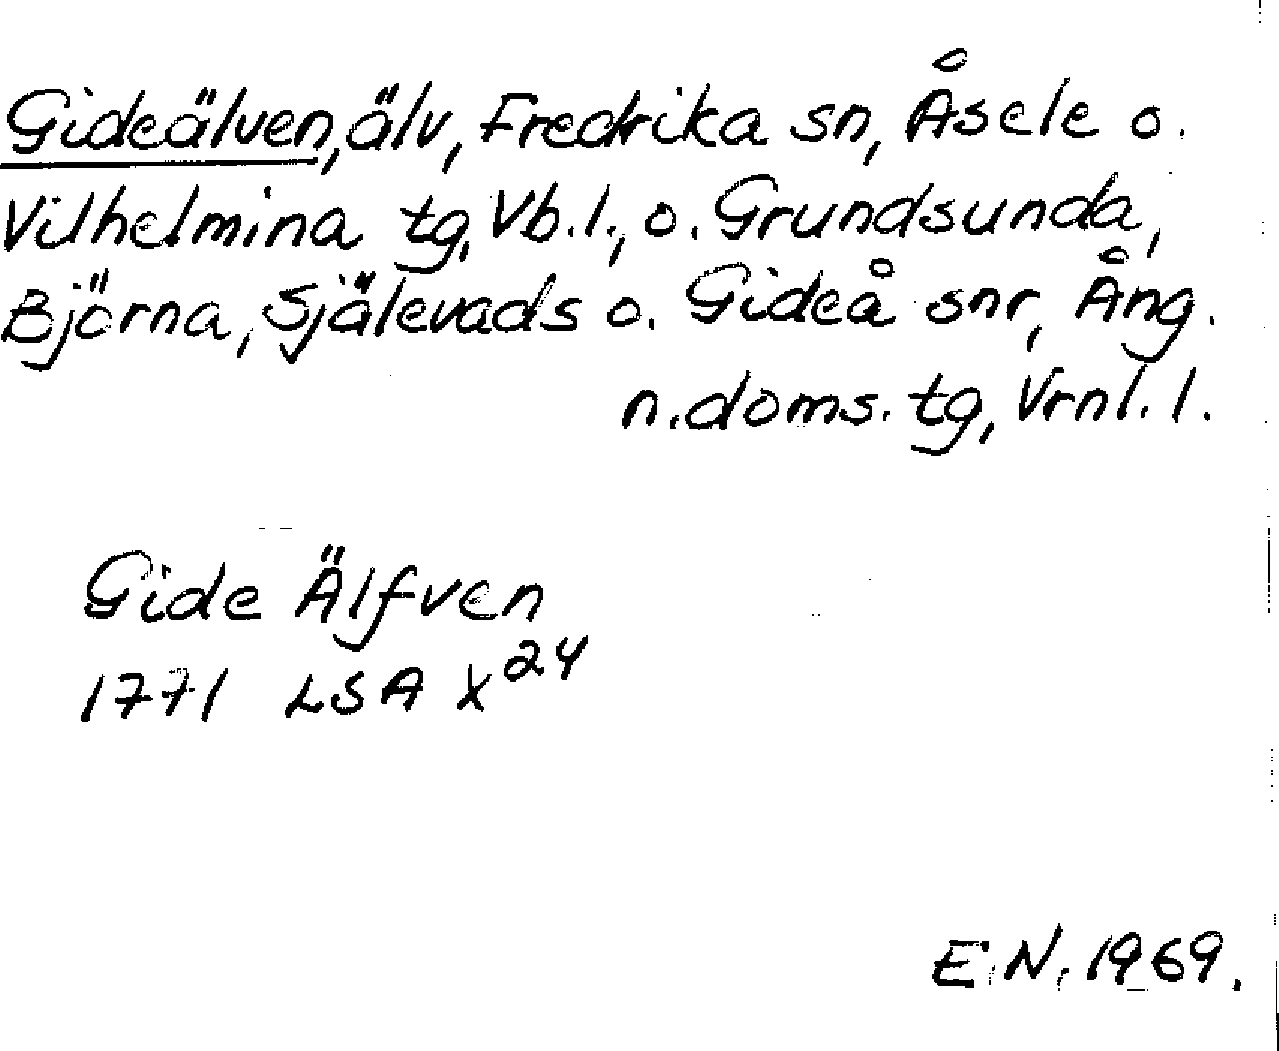 Gideälven, älv, Fredrika sn, Åsele o.
Vilhelmina tg, Vb.l., o. Grundsunda,
Björna, Själevads o. Gideå snr, Ång.
n.doms. tg, Vrnl. l.
Gide Älfven
1771 LSA X²⁴
E.N. 1969.